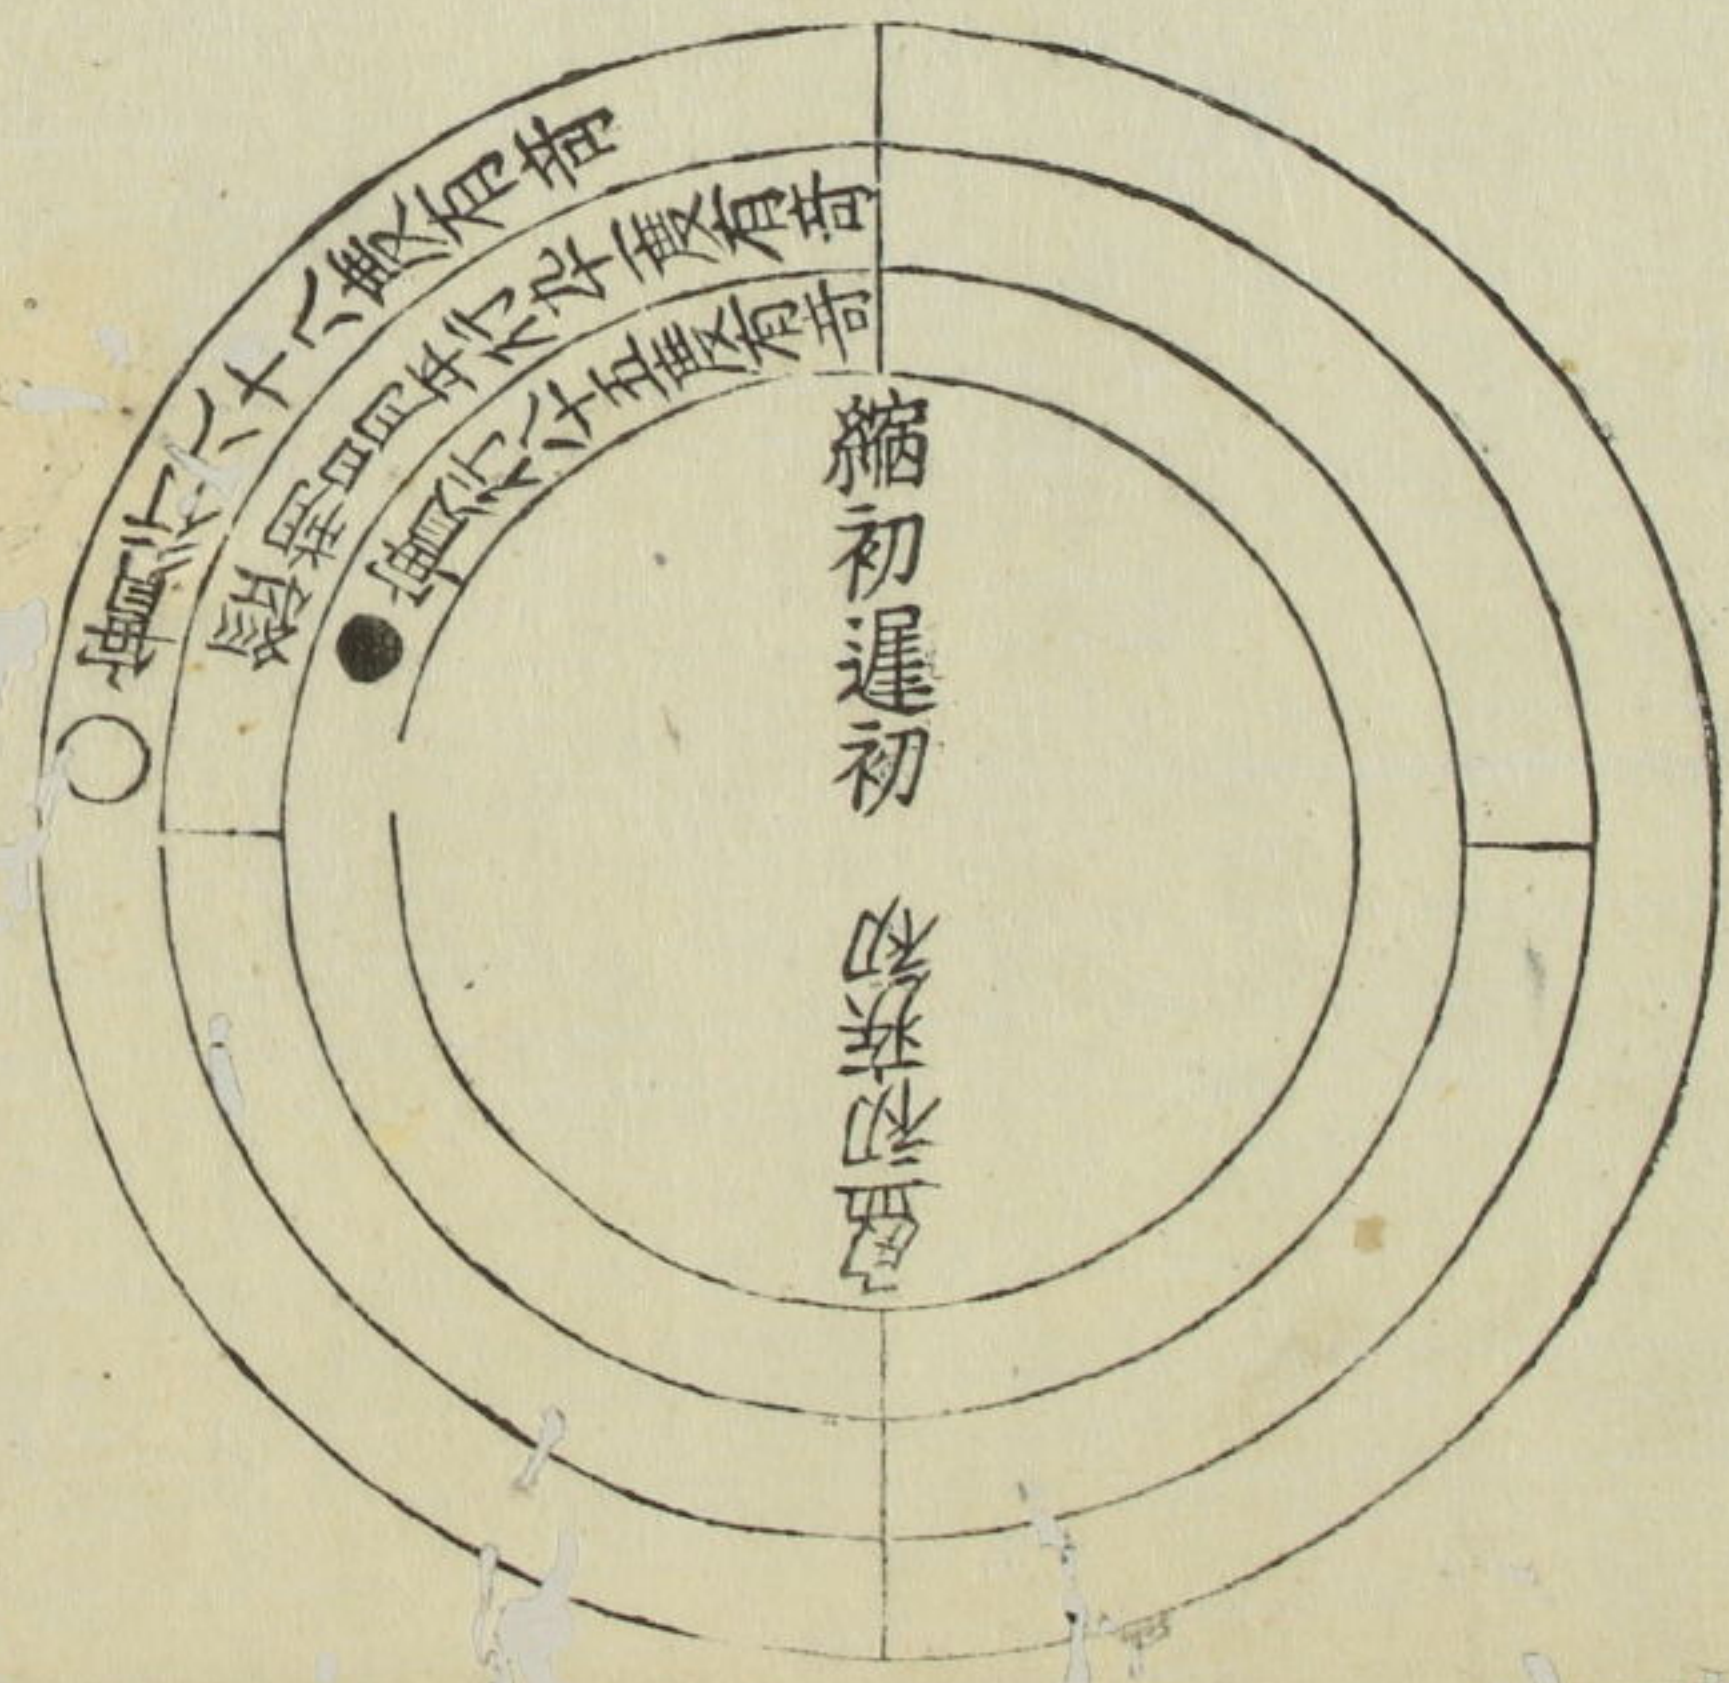 實行八十八度有奇
平行九十一度有奇
實行八十五度有奇
縮初遲初
盈初疾初